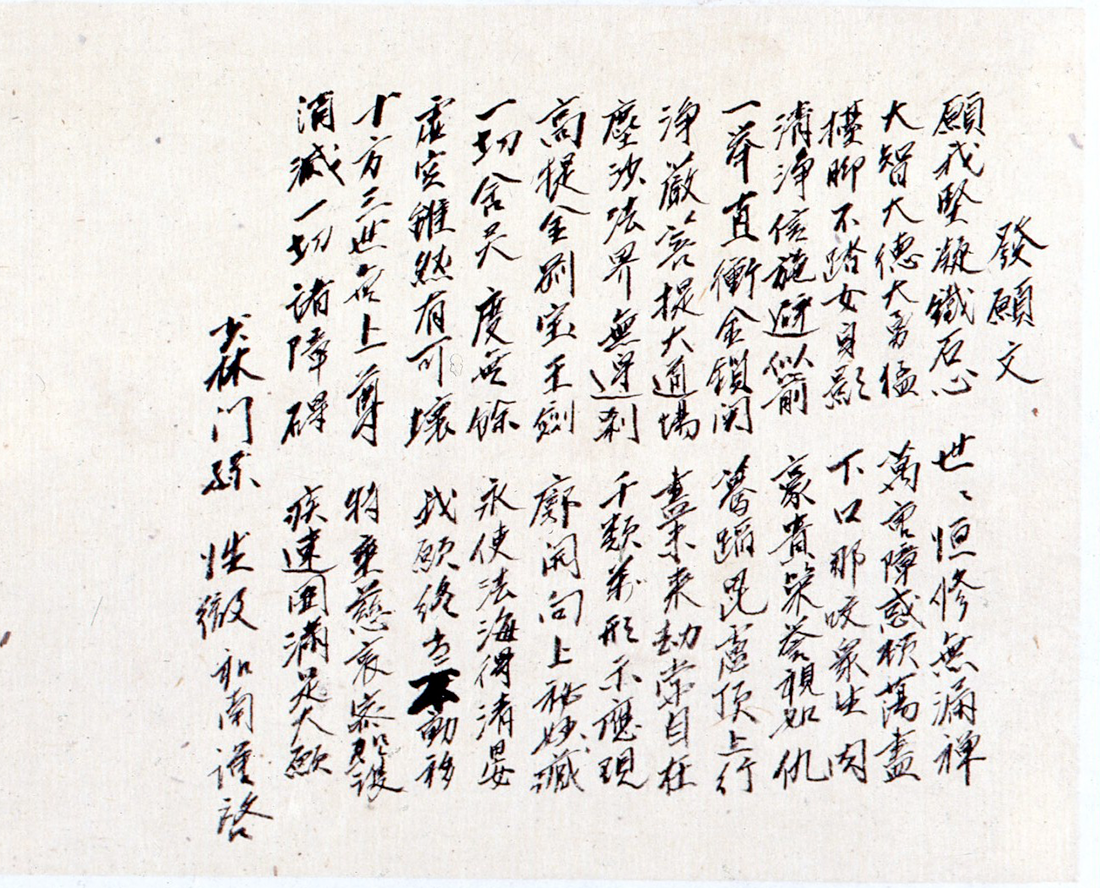 發願文
願我堅凝鐵石心 世〻恒修無漏禪
大智大德大勇猛 萬重障惑頓蕩盡
擡脚不踏女身影 下口那咬衆生肉
清淨信施避似箭 豪貴榮譽視如仇
一擧直衝金鎖関 驀蹈毘盧頂上行
淨嚴菩提大道場 盡未来劫常自在
塵沙法界無邊刹 千類萬形示應現
高提金剛宝王劍 廓開向上秘妙藏
一切含灵度無餘 永使法海得清晏
虛空雖然有可壞 我願終當不動移
十方三世無上尊 特垂慈哀密加護
消滅一切諸障碍 疾速圓滿是大願
少林門孫 性徹 和南謹啓